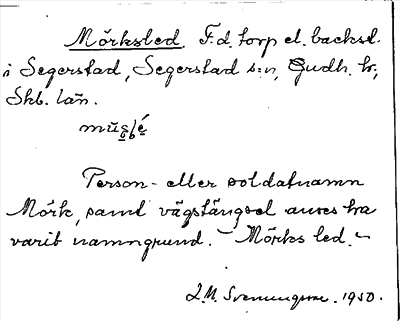 Mörksled. F.d. torp el. backst.
i Segerstad, Segerstad s:n, Gudh. h;
Skb. län.
Person- eller soldatnamn
Mörk, samt vägstängsel anses ha
varit namngrund. Mörks led.
L.M. Svenungsson. 1950.